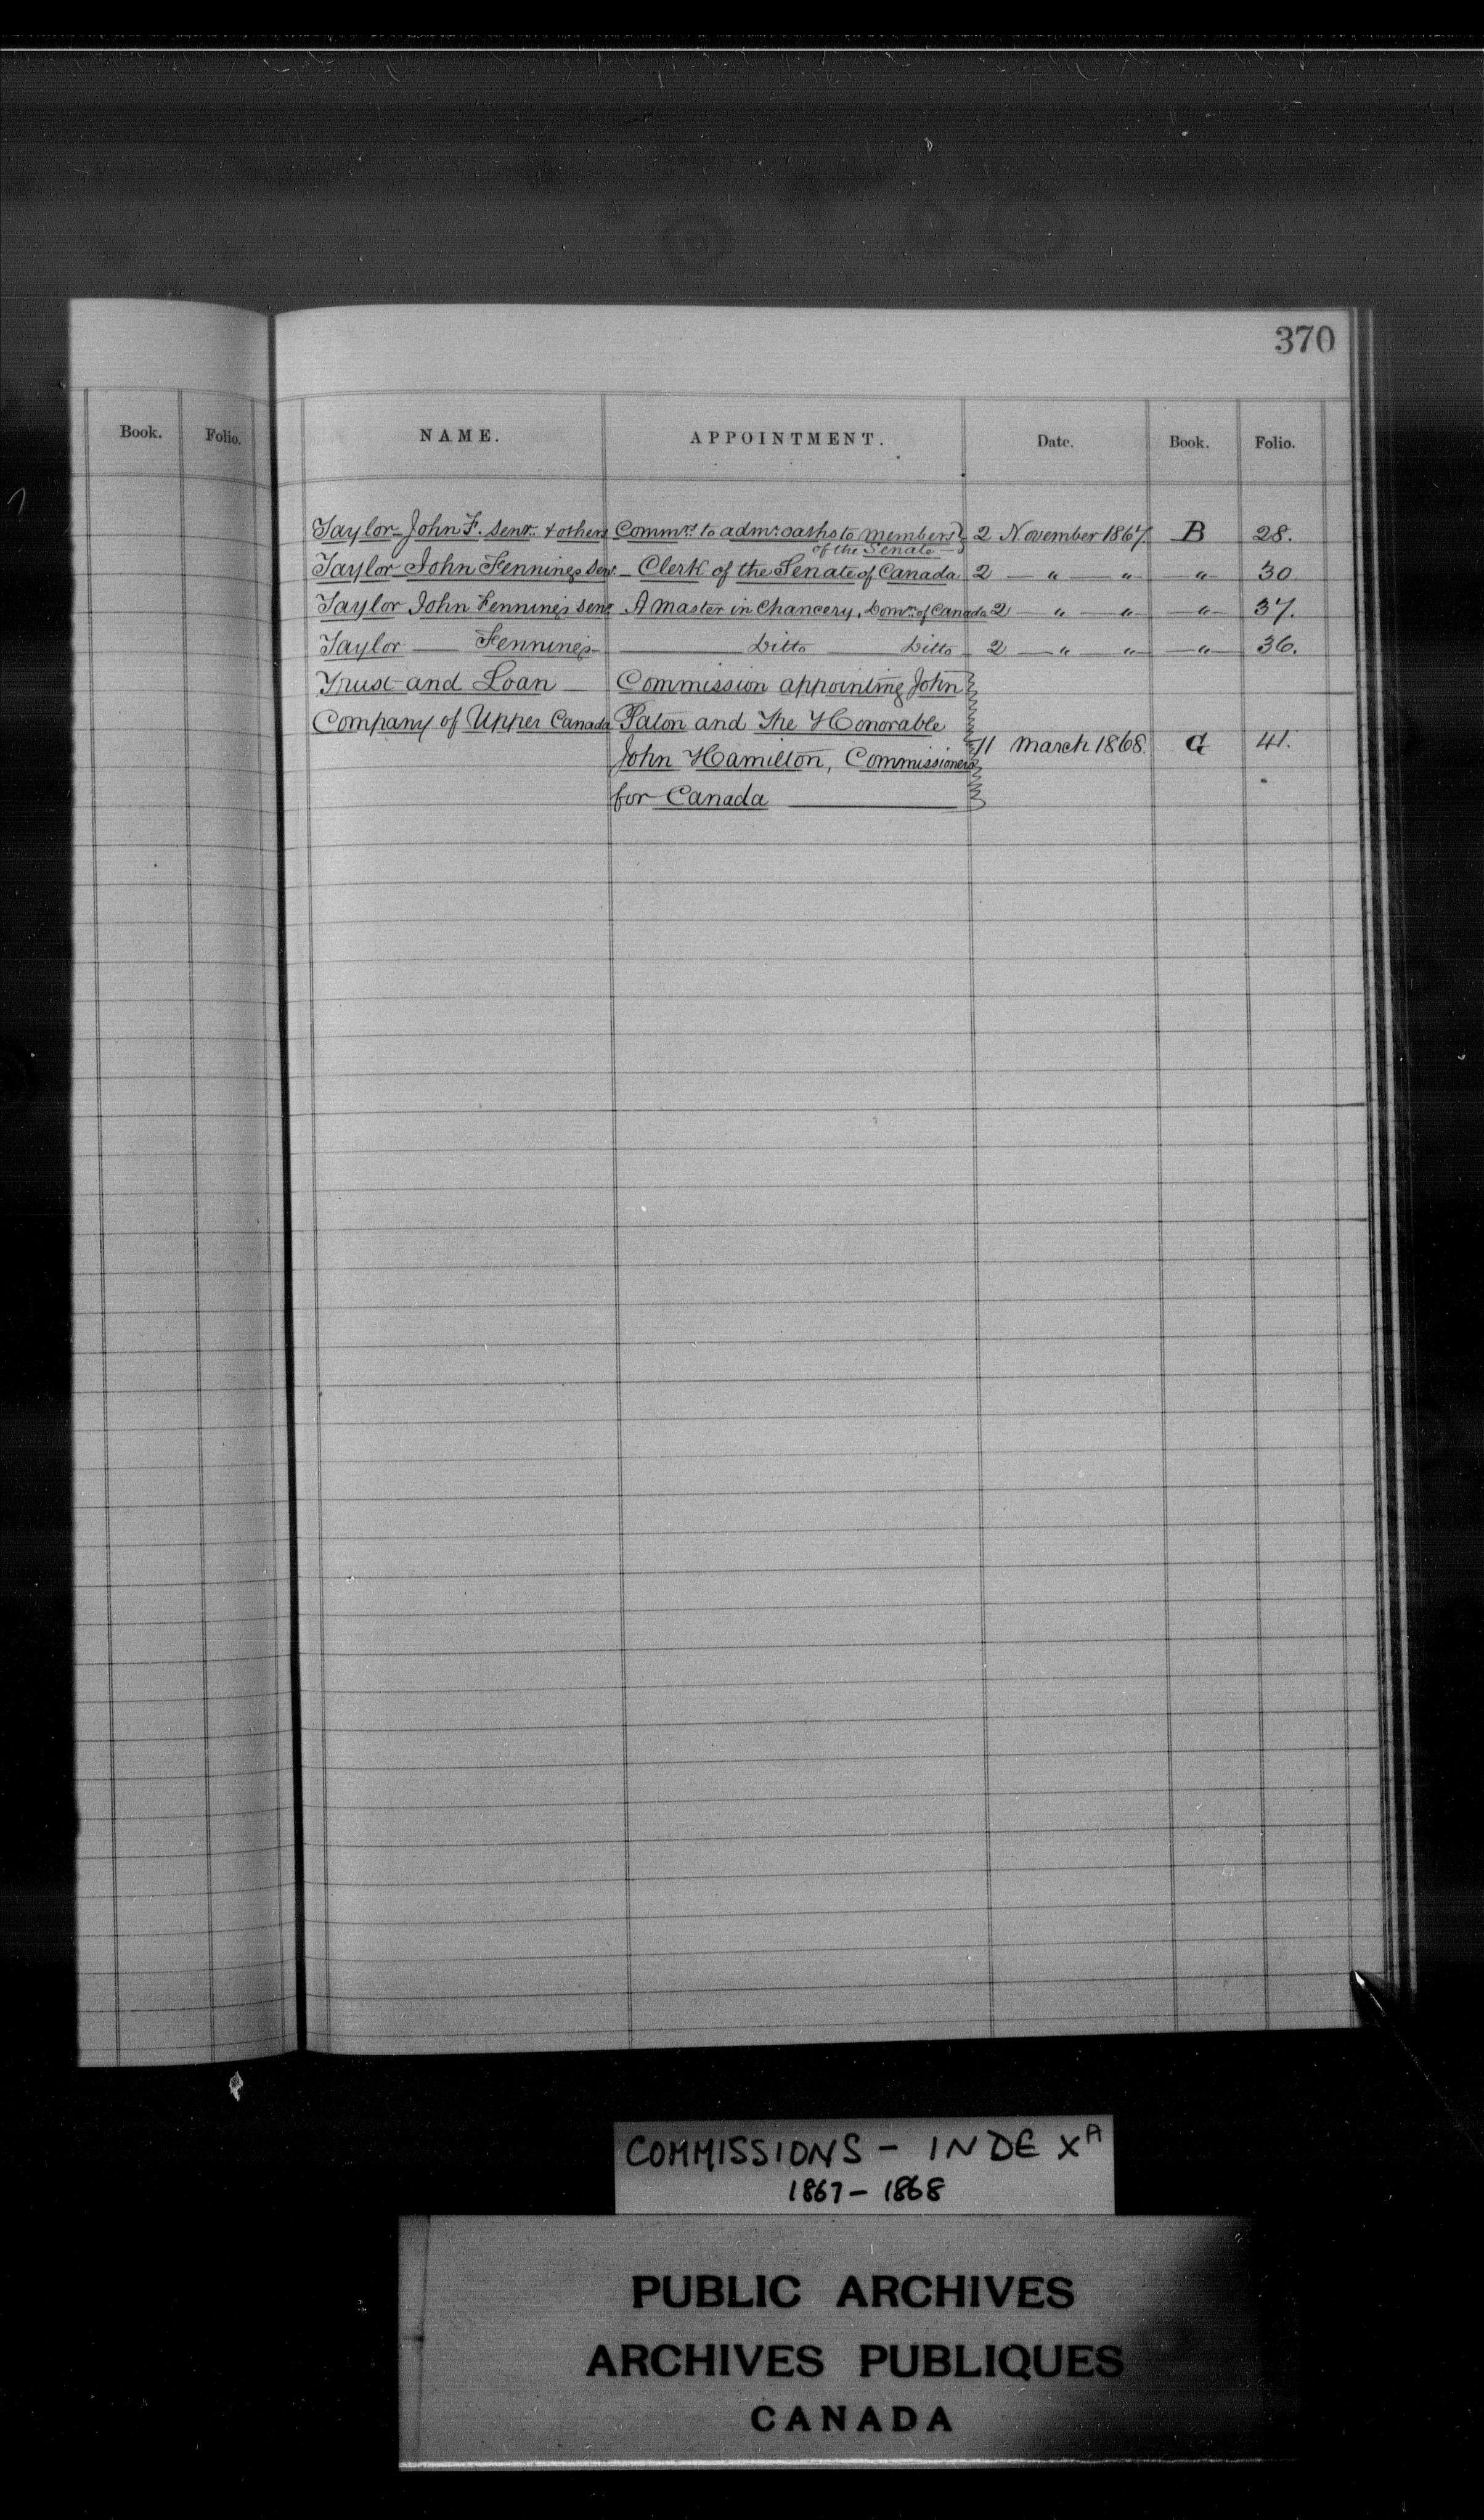 370
Book. Folio. NAME. APPOINTMENT. Date. Book. Folio.
Taylor John F. Senr. & others Commrs. to admr. oaths to Members 2 November 1867 B 28.
of the Senate
Taylor John Fennings Senr. Clerk of the Senate of Canada 2 " " " 30
Taylor John Fennings Senr A Master in Chancery, Domn. of Canada 2 " " " 37.
Taylor Fennings Ditto Ditto 2 " " " 36.
Trust and Loan Commission appointing John
Company of Upper Canada Paton and The Honorable
John Hamilton, Commissioners 11 March 1868. G 41.
for Canada
COMMISSIONS - INDEX A
1867 - 1868
PUBLIC ARCHIVES
ARCHIVES PUBLIQUES
CANADA